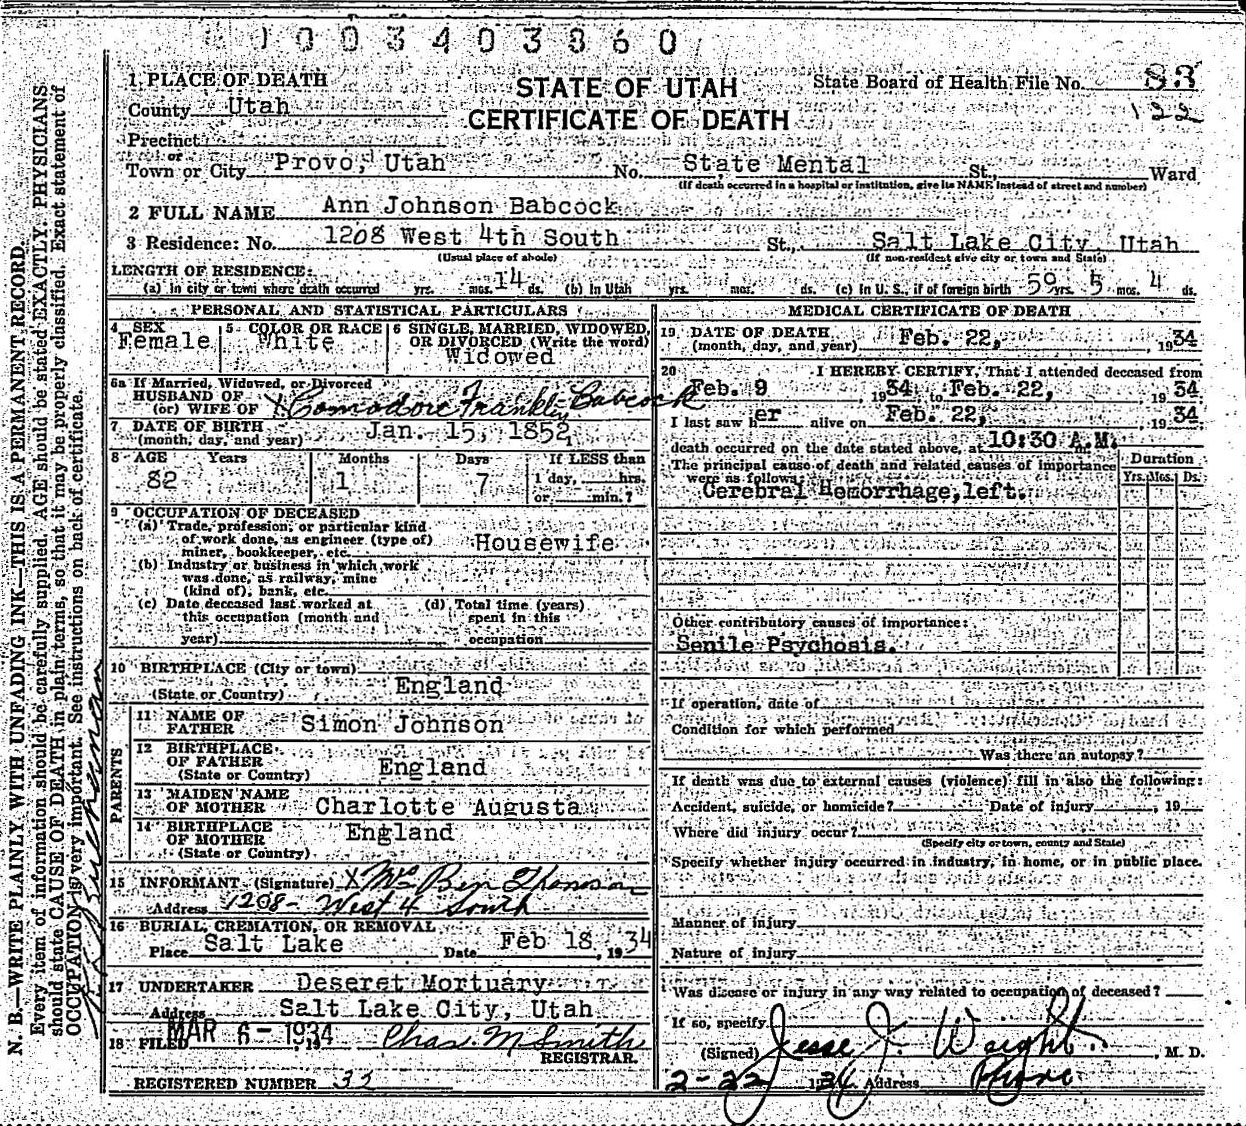 1003403860
1. PLACE OF DEATH
County Utah
Precinct
or
Town or City Provo, Utah
STATE OF UTAH
CERTIFICATE OF DEATH
State Board of Health File No. 83
122
No. State Mental St., Ward
(If death occurred in a hospital or institution, give its NAME instead of street and number)
2 FULL NAME Ann Johnson Babcock
3 Residence: No. 1208 West 4th South St., Salt Lake City, Utah
(Usual place of abode) (If non-resident give city or town and State)
LENGTH OF RESIDENCE:
(a) In city or town where death occurred yrs. mos. 14 ds. (b) In Utah yrs. mos. ds. (c) In U. S., if of foreign birth 59 yrs. 5 mos. 4 ds.
PERSONAL AND STATISTICAL PARTICULARS
4 SEX
Female
5 COLOR OR RACE
White
6 SINGLE, MARRIED, WIDOWED,
OR DIVORCED (Write the word)
Widowed
6a If Married, Widowed, or Divorced
HUSBAND OF
(or) WIFE OF X Comodore Franklin Babcock
7 DATE OF BIRTH
(month, day, and year) Jan. 15, 1852
8 AGE Years Months Days If LESS than
82 1 7 1 day, hrs.
or min.?
9 OCCUPATION OF DECEASED
(a) Trade, profession, or particular kind
of work done, as engineer (type of)
miner, bookkeeper, etc. Housewife
(b) Industry or business in which work
was done, as railway, mine
(kind of), bank, etc.
(c) Date deceased last worked at
this occupation (month and
year)
(d) Total time (years)
spent in this
occupation
10 BIRTHPLACE (City or town)
(State or Country) England
PARENTS
11 NAME OF
FATHER Simon Johnson
12 BIRTHPLACE
OF FATHER England
(State or Country)
13 MAIDEN NAME
OF MOTHER Charlotte Augusta
14 BIRTHPLACE
OF MOTHER England
(State or Country)
15 INFORMANT (Signature) X Mrs Ben Thomson
Address 1208- West 4 South
16 BURIAL, CREMATION, OR REMOVAL
Place Salt Lake Date Feb 18, 1934
17 UNDERTAKER Deseret Mortuary
Address Salt Lake City, Utah
18 FILED MAR 6 - 1934, 19 Chas. M Smith
REGISTRAR.
REGISTERED NUMBER 33
MEDICAL CERTIFICATE OF DEATH
19 DATE OF DEATH
(month, day, and year) Feb. 22, 1934
20 I HEREBY CERTIFY, That I attended deceased from
Feb. 9, 1934, to Feb. 22, 1934.
I last saw her alive on Feb. 22, 1934
death occurred on the date stated above, at 10:30 A.M. m.
The principal cause of death and related causes of importance
were as follows:
Duration
Yrs. Mos. Ds.
Cerebral Hemorrhage, left.
Other contributory causes of importance:
Senile Psychosis.
If operation, date of
Condition for which performed
Was there an autopsy?
If death was due to external causes (violence) fill in also the following:
Accident, suicide, or homicide? Date of injury, 19
Where did injury occur?
(Specify city or town, county and State)
Specify whether injury occurred in industry, in home, or in public place.
Manner of injury
Nature of injury
Was disease or injury in any way related to occupation of deceased?
If so, specify
(Signed) Jesse J. Weight, M. D.
2-22 1934 Address Provo
N. B.—WRITE PLAINLY WITH UNFADING INK—THIS IS A PERMANENT RECORD.
Every item of information should be carefully supplied. AGE should be stated EXACTLY. PHYSICIANS
should state CAUSE OF DEATH in plain terms, so that it may be properly classified. Exact statement of
OCCUPATION is very important. See instructions on back of certificate.